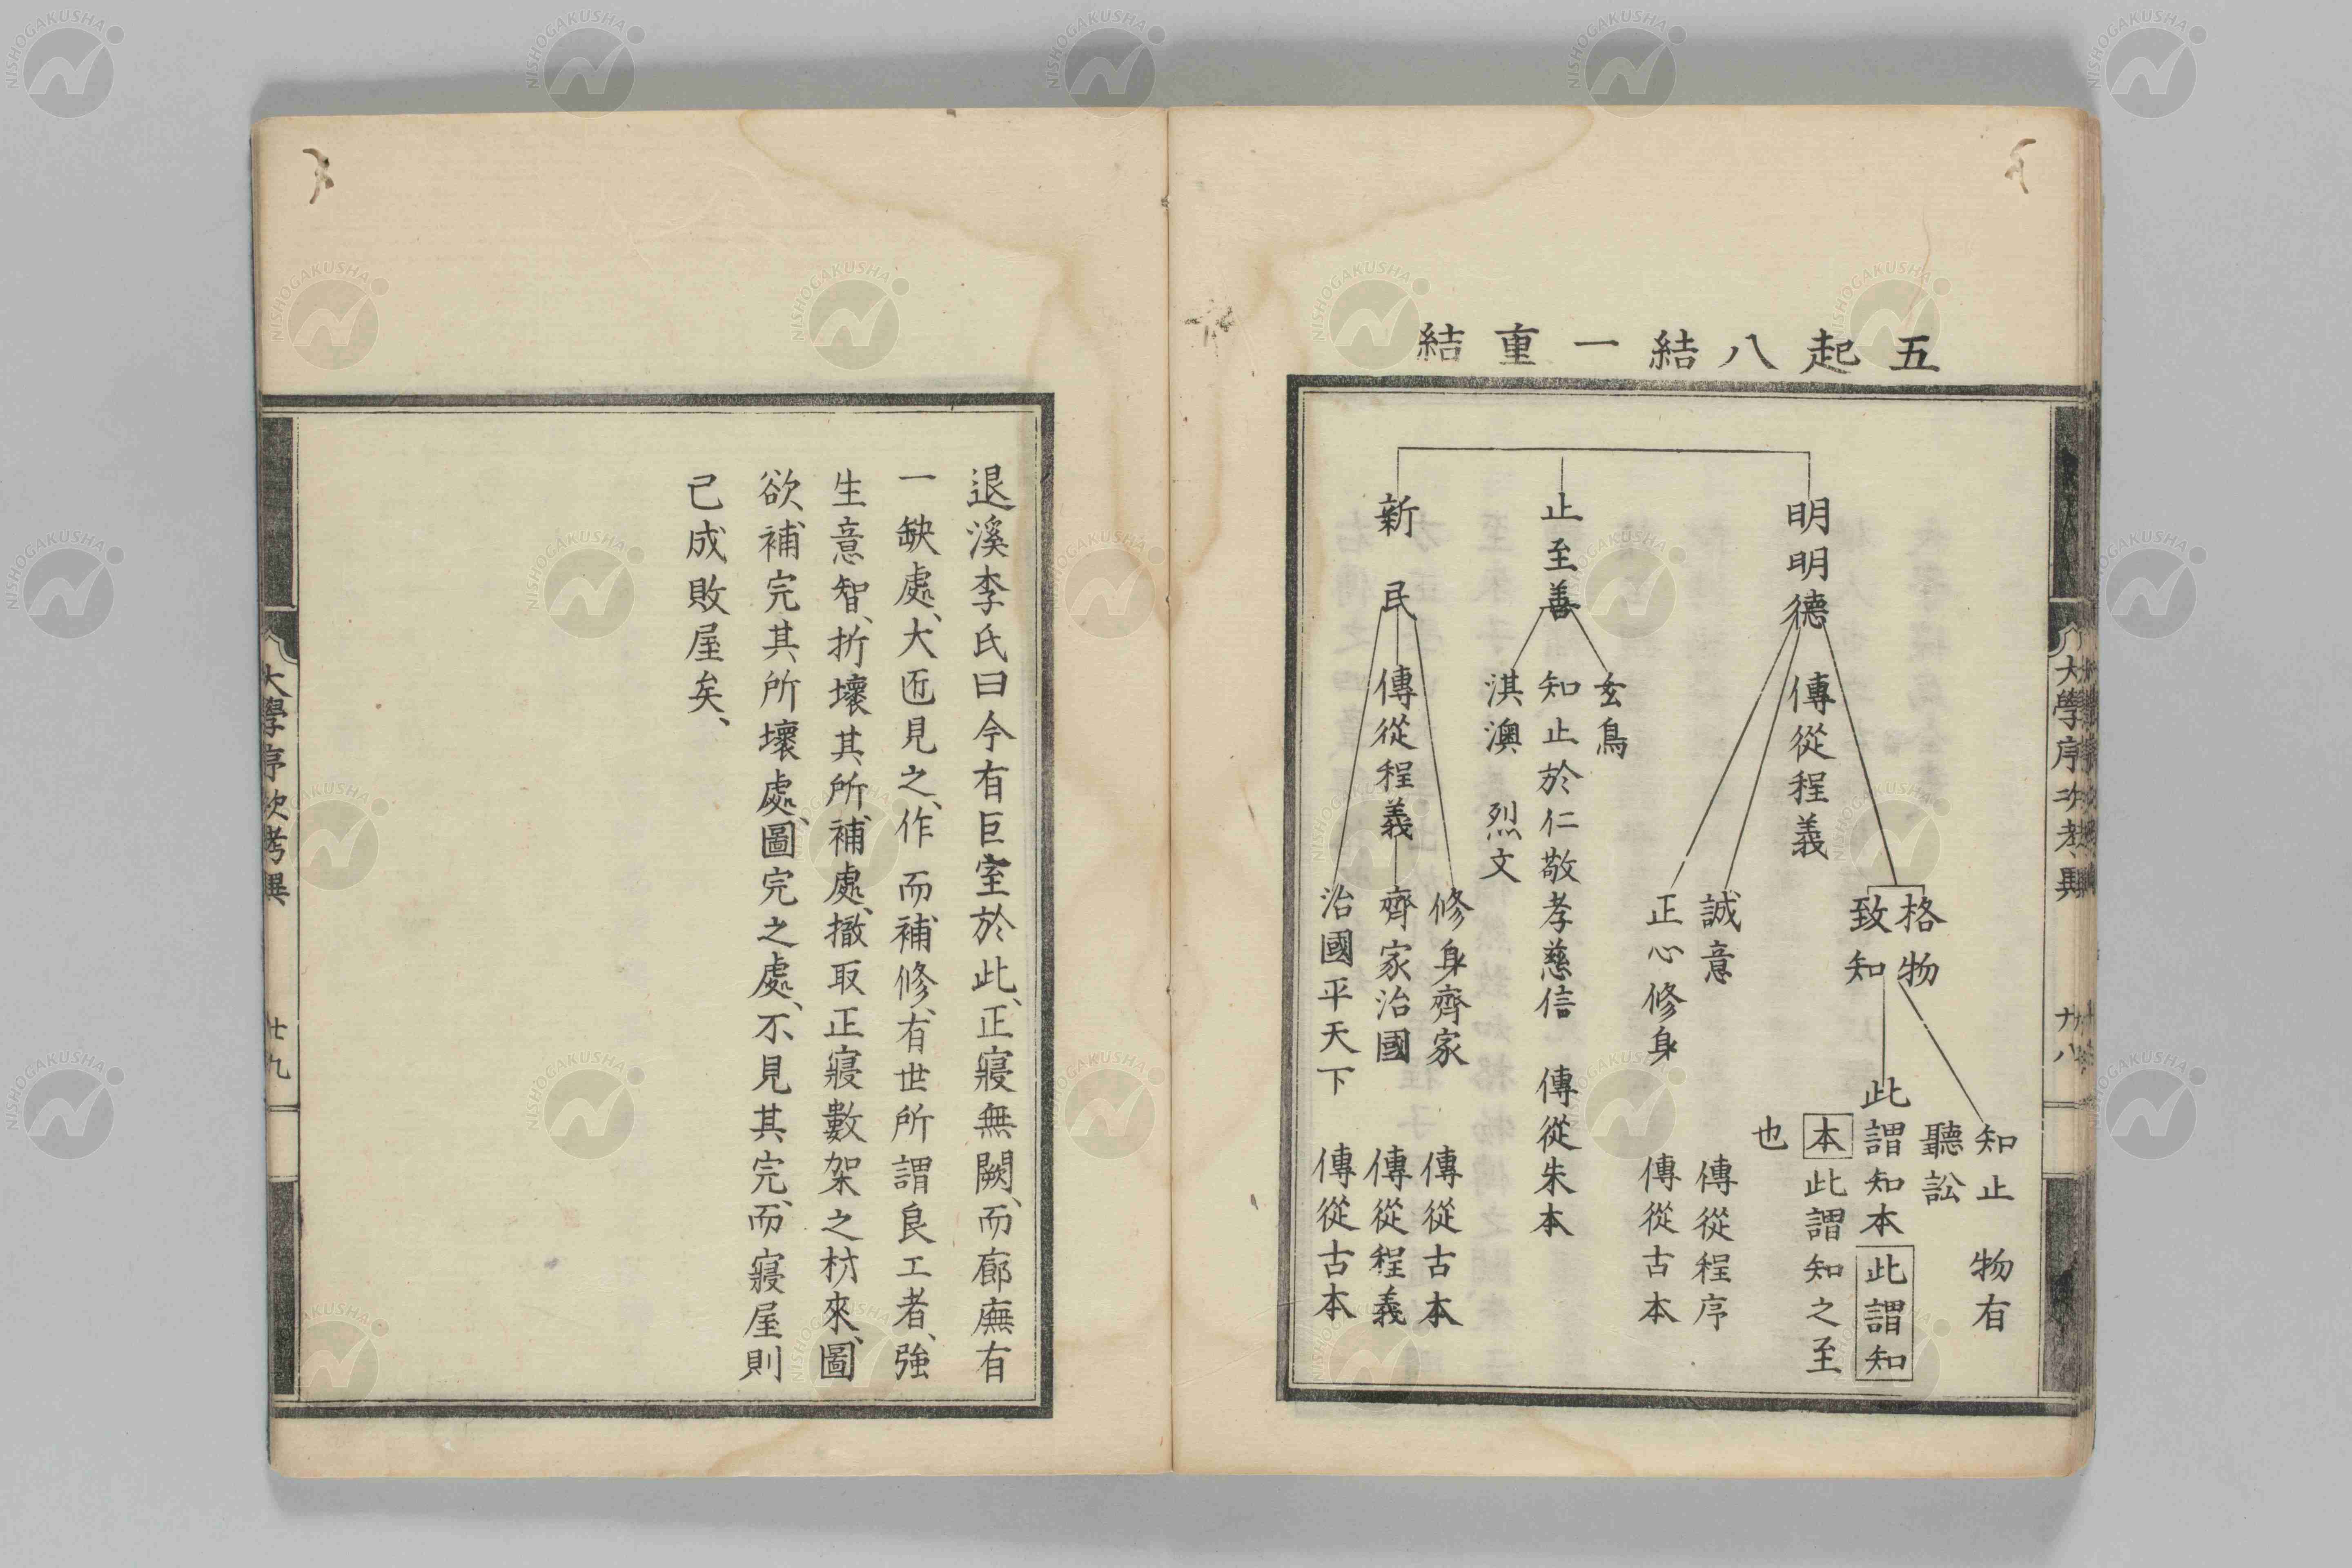 五起八結一重結
明明德　傳從程義
格物
致知
知止　物有
聽訟
此謂知本此謂知
本此謂知之至
也
誠意　傳從程序
正心修身　傳從古本
止至善
玄鳥
知止於仁敬孝慈信　傳從朱本
淇澳　烈文
新民　傳從程義
修身齊家　傳從古本
齊家治國　傳從程義
治國平天下　傳從古本
大學序次考異
十八
退溪李氏曰今有巨室於此、正寢無闕、而廊廡有
一缺處、大匠見之、作而補修、有世所謂良工者、強
生意智、折壞其所補處、撤取正寢數架之材來、圖
欲補完其所壞處、圖完之處、不見其完、而寢屋則
已成敗屋矣、
大學序次考異
廿九
NISHOGAKUSHA